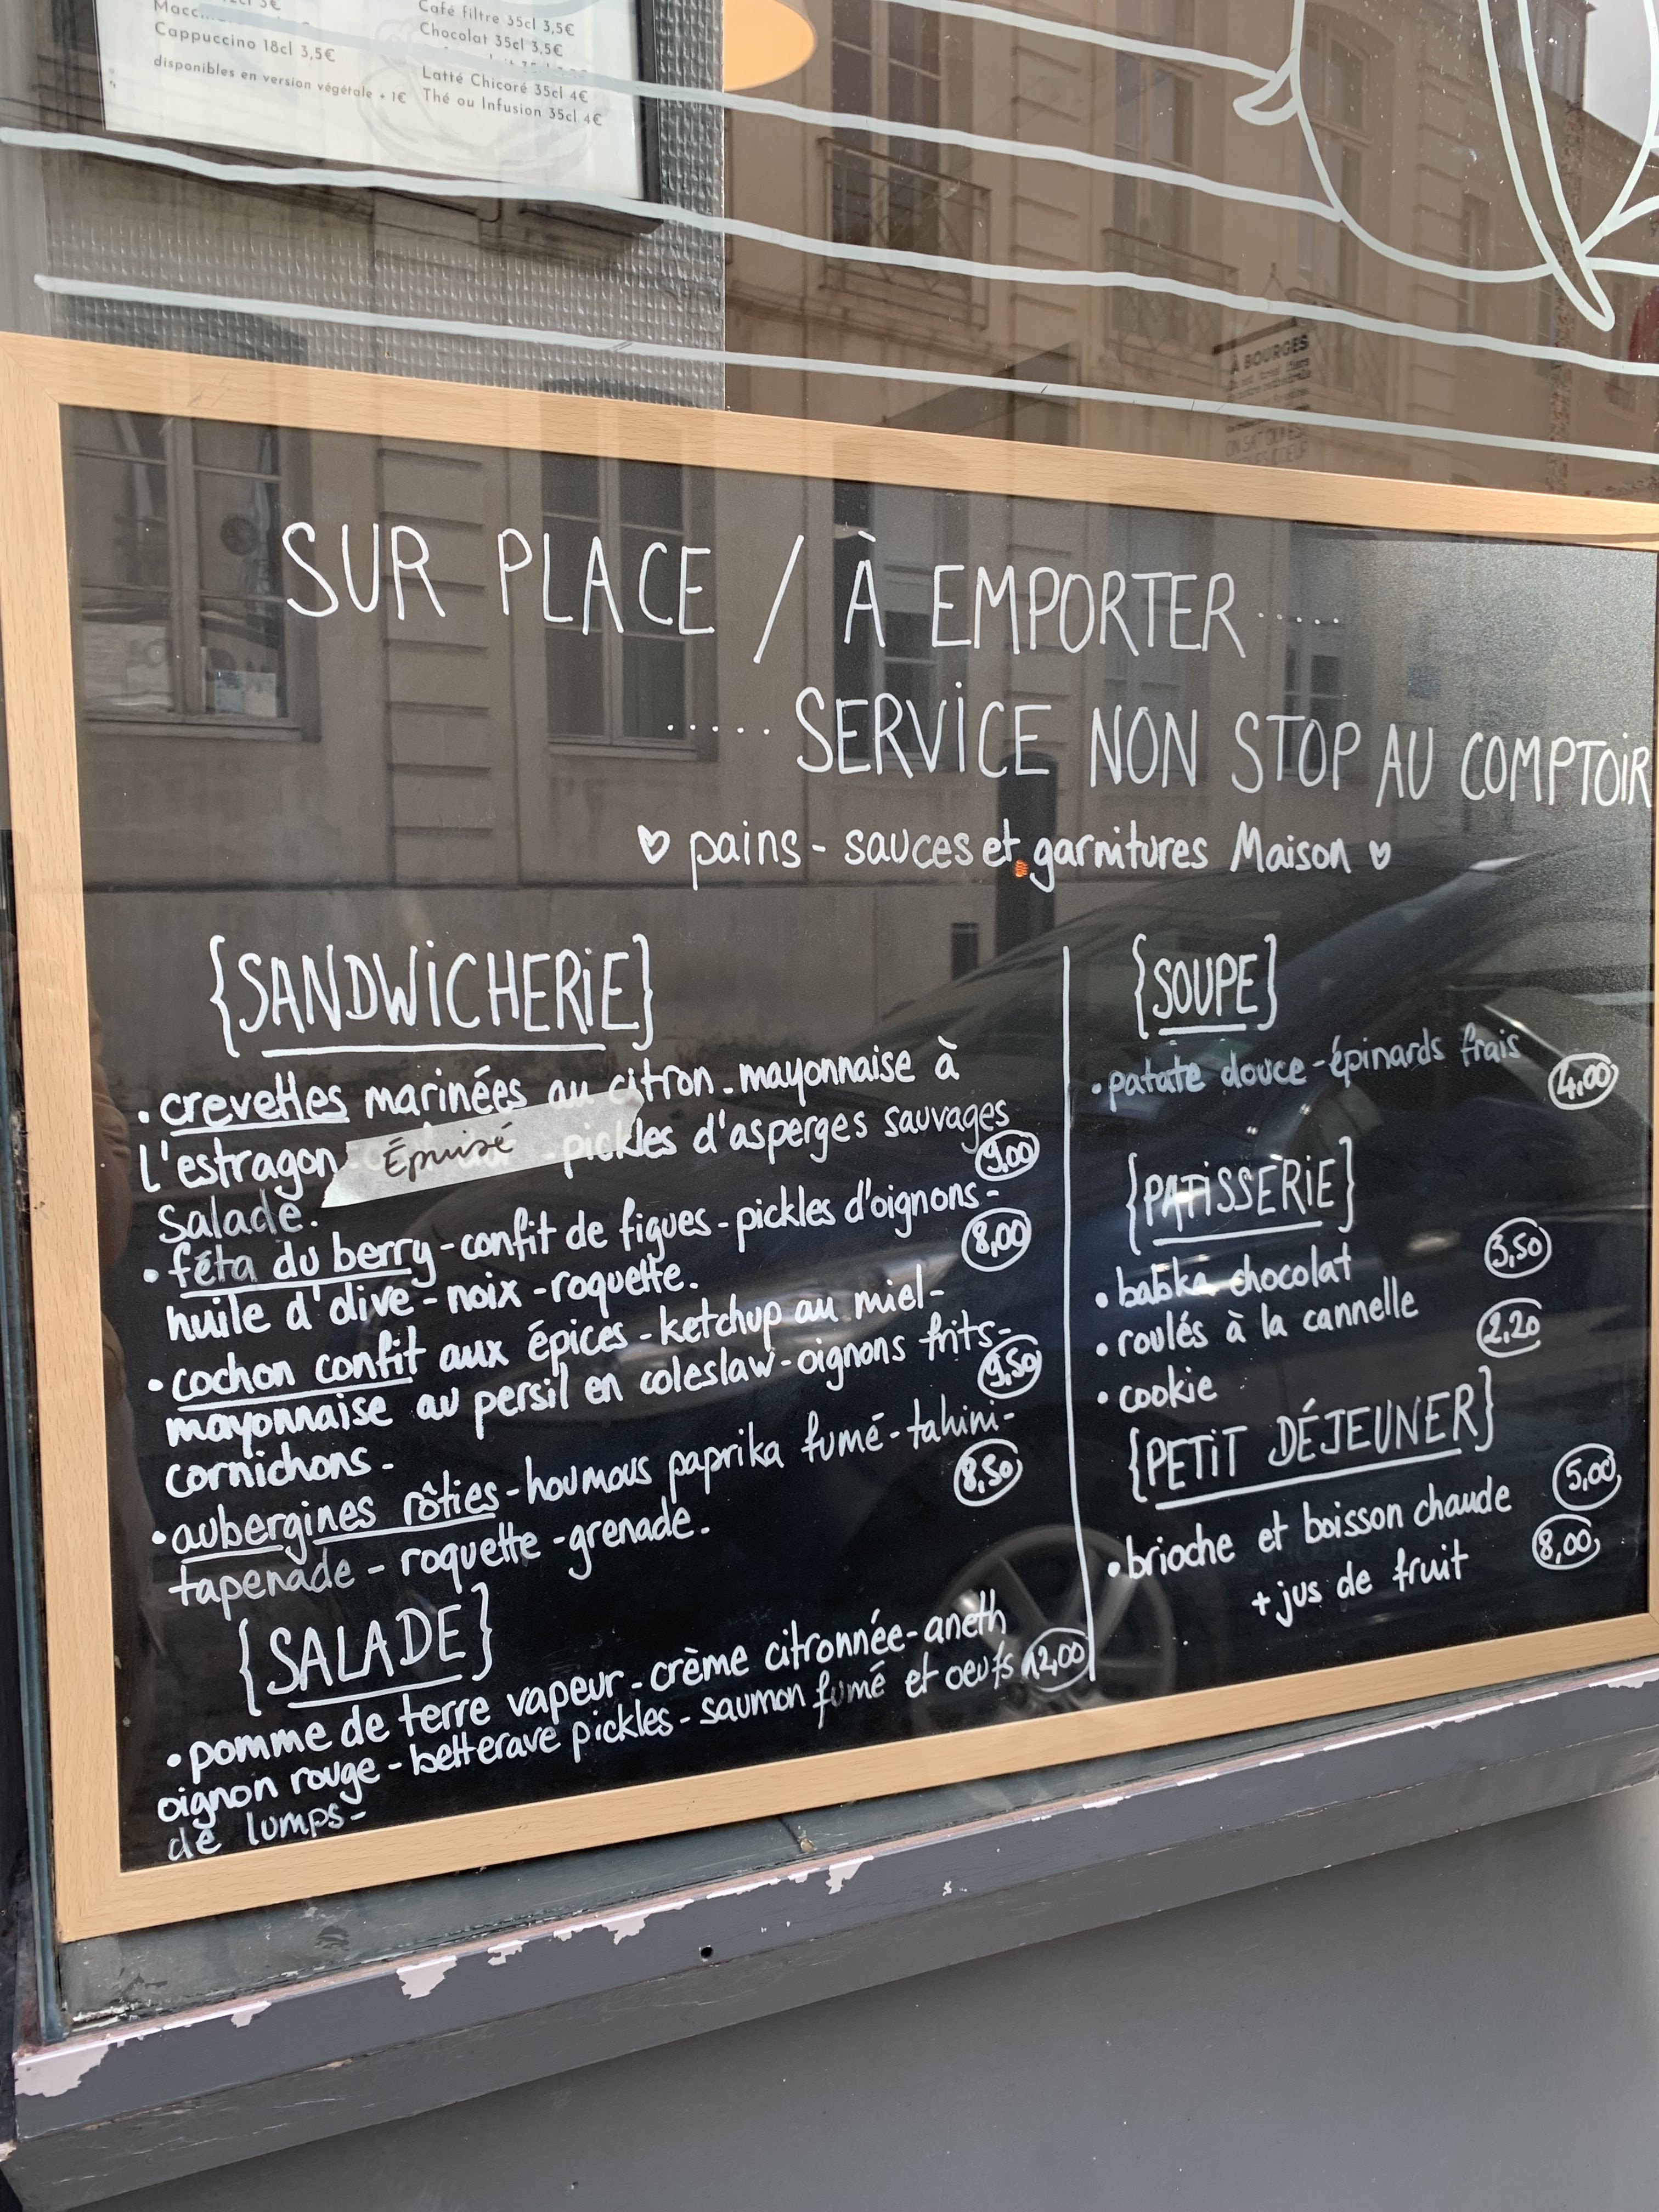 Cappuccino 18cl 3,5€
disponibles en version végétale + 1€
Café filtre 35cl 3,5€
Chocolat 35cl 3,5€
Latté Chicoré 35cl 4€
Thé ou Infusion 35cl 4€
À BOURGES
SUR PLACE / À EMPORTER .....
..... SERVICE NON STOP AU COMPTOIR
♡ pains - sauces et garnitures Maison ♡
{SANDWICHERIE}
• crevettes marinées au citron - mayonnaise à
l'estragon - Épuisé - pickles d'asperges sauvages
9,00
Salade.
• féta du berry - confit de figues - pickles d'oignons -
8,00
huile d'olive - noix - roquette.
• cochon confit aux épices - ketchup au miel -
mayonnaise au persil en coleslaw - oignons frits -
9,50
cornichons -
• aubergines rôties - houmous paprika fumé - tahini -
8,50
tapenade - roquette - grenade.
{SALADE}
• pomme de terre vapeur - crème citronnée - aneth
oignon rouge - betterave pickles - saumon fumé et oeufs 12,00
de lumps -
{SOUPE}
• patate douce - épinards frais
4,00
{PATISSERIE}
3,50
• babka chocolat
• roulés à la cannelle
2,20
• cookie
{PETIT DÉJEUNER}
5,00
• brioche et boisson chaude
8,00
+ jus de fruit